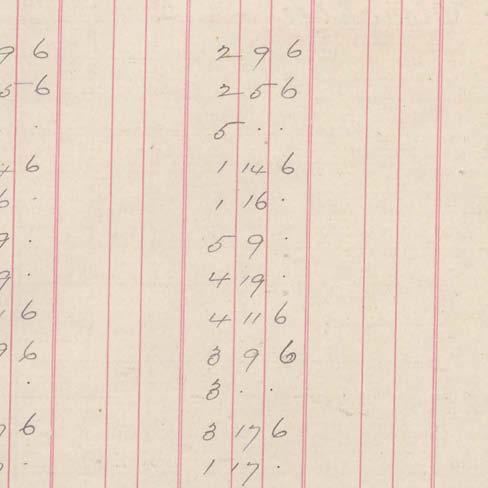 9 6 2 9 6
5 6 2 5 6
. 5 . .
4 6 1 14 6
6 . 1 16 .
9 . 5 9 .
9 . 4 19 .
1 6 4 11 6
9 6 3 9 6
. 3 . .
7 6 3 17 6
7 . 1 17 .